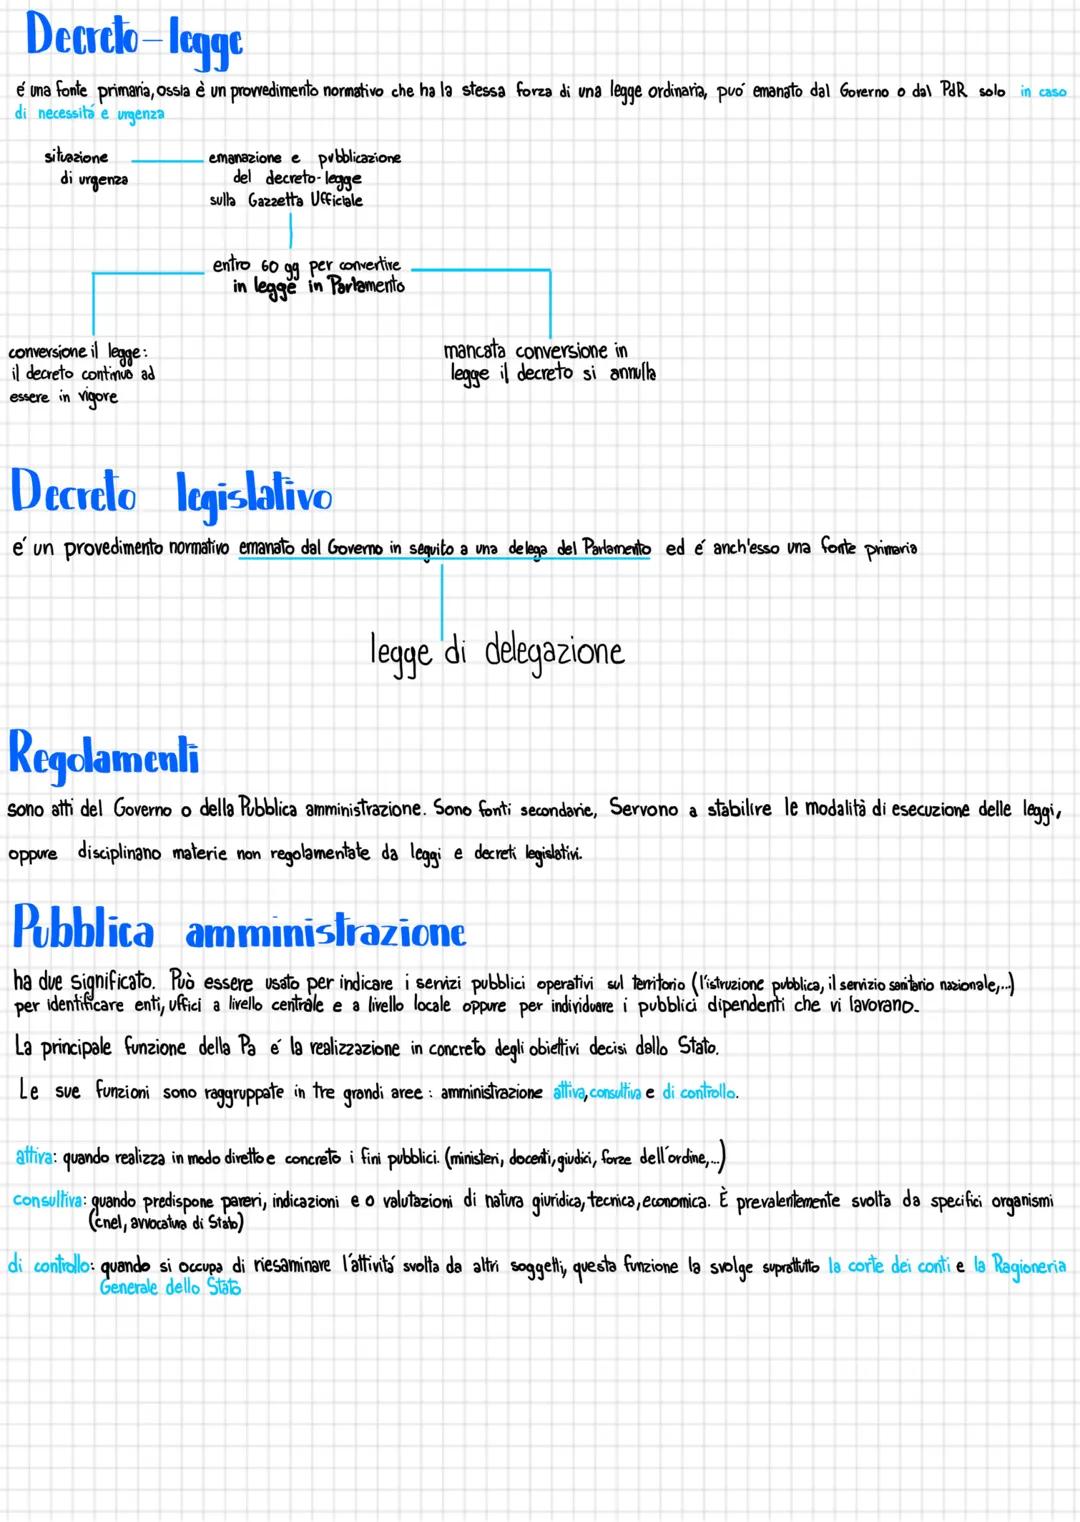 Decreto-legge
é una fonte primaria, ossia è un provvedimento normativo che ha la stessa forza di una legge ordinaria, puó emanato dal Governo o dal PdR solo in caso
di necessitá e urgenza
situazione
di urgenza
emanazione e pubblicazione
del decreto-legge
sulla Gazzetta Ufficiale
entro 60 gg per convertire
in legge in Parlamento
conversione il legge:
il decreto continua ad
essere in vigore
mancata conversione in
legge il decreto si annulla
Decreto legislativo
é un provedimento normativo emanato dal Governo in seguito a una delega del Parlamento ed é anch'esso una fonte primaria
legge di delegazione
Regolamenti
sono atti del Governo o della Pubblica amministrazione. Sono fonti secondarie, Servono a stabilire le modalità di esecuzione delle leggi,
oppure disciplinano materie non regolamentate da leggi e decreti legislativi.
Pubblica amministrazione
ha due significato. Può essere usato per indicare i servizi pubblici operativi sul territorio (l'istruzione pubblica, il servizio sanitario nazionale,...)
per identificare enti, uffici a livello centrale e a livello locale oppure per individuare i pubblici dipendenti che vi lavorano.
La principale funzione della Pa é la realizzazione in concreto degli obiettivi decisi dallo Stato.
Le sue funzioni sono raggruppate in tre grandi aree: amministrazione attiva, consultiva e di controllo.
attiva: quando realizza in modo diretto e concreto i fini pubblici. (ministeri, docenti, giudici, forze dell'ordine,...)
consultiva: quando predispone pareri, indicazioni e o valutazioni di natura giuridica, tecnica, economica. È prevalentemente svolta da specifici organismi
(cnel, avvocatura di Stato)
di controllo: quando si occupa di riesaminare l'attivitá svolta da altri soggetti, questa funzione la svolge suprattutto la corte dei conti e la Ragioneria
Generale dello Stato